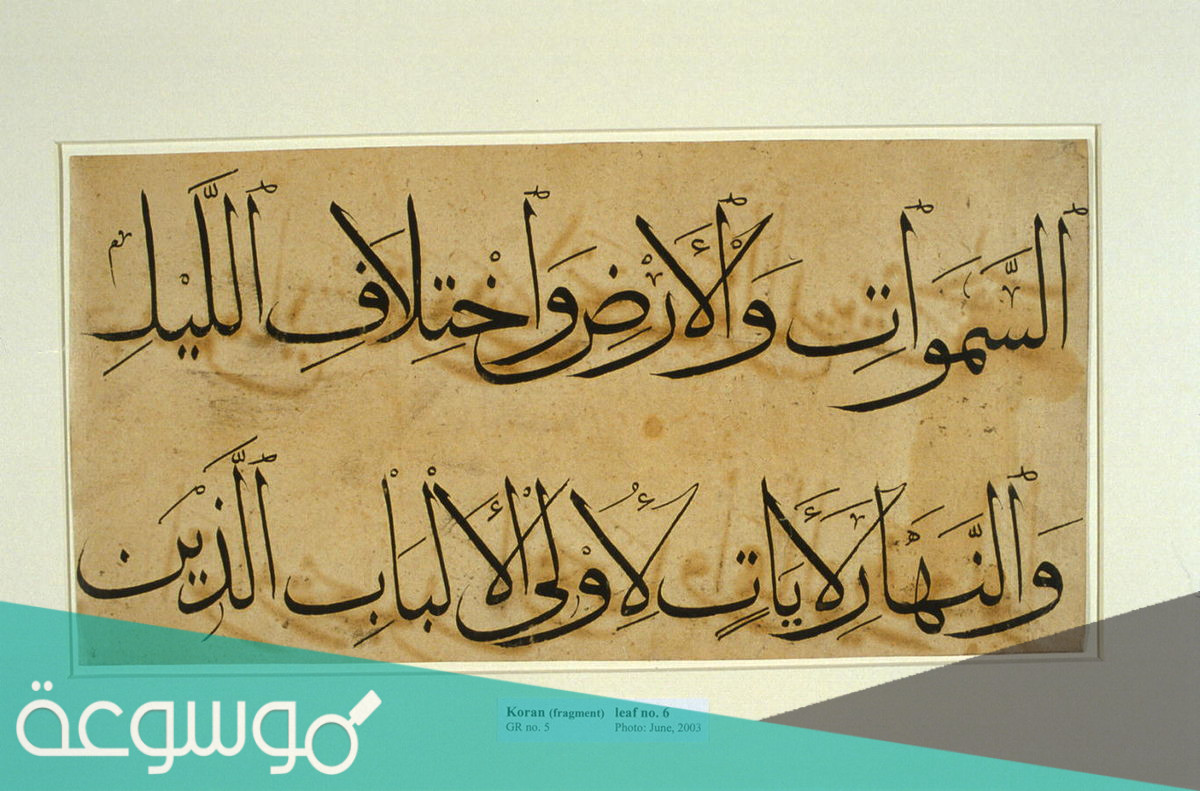 ٱلسَّمَوَاتِ وَٱلْأَرْضِ وَٱخْتِلَافِ ٱللَّيْلِ
وَٱلنَّهَارِ لَأَيَاتٍ لِأُوْلِي ٱلْأَلْبَابِ ٱلَّذِيْنَ
Koran (fragment) leaf no. 6
GR no. 5 Photo: June, 2003
موسوعة